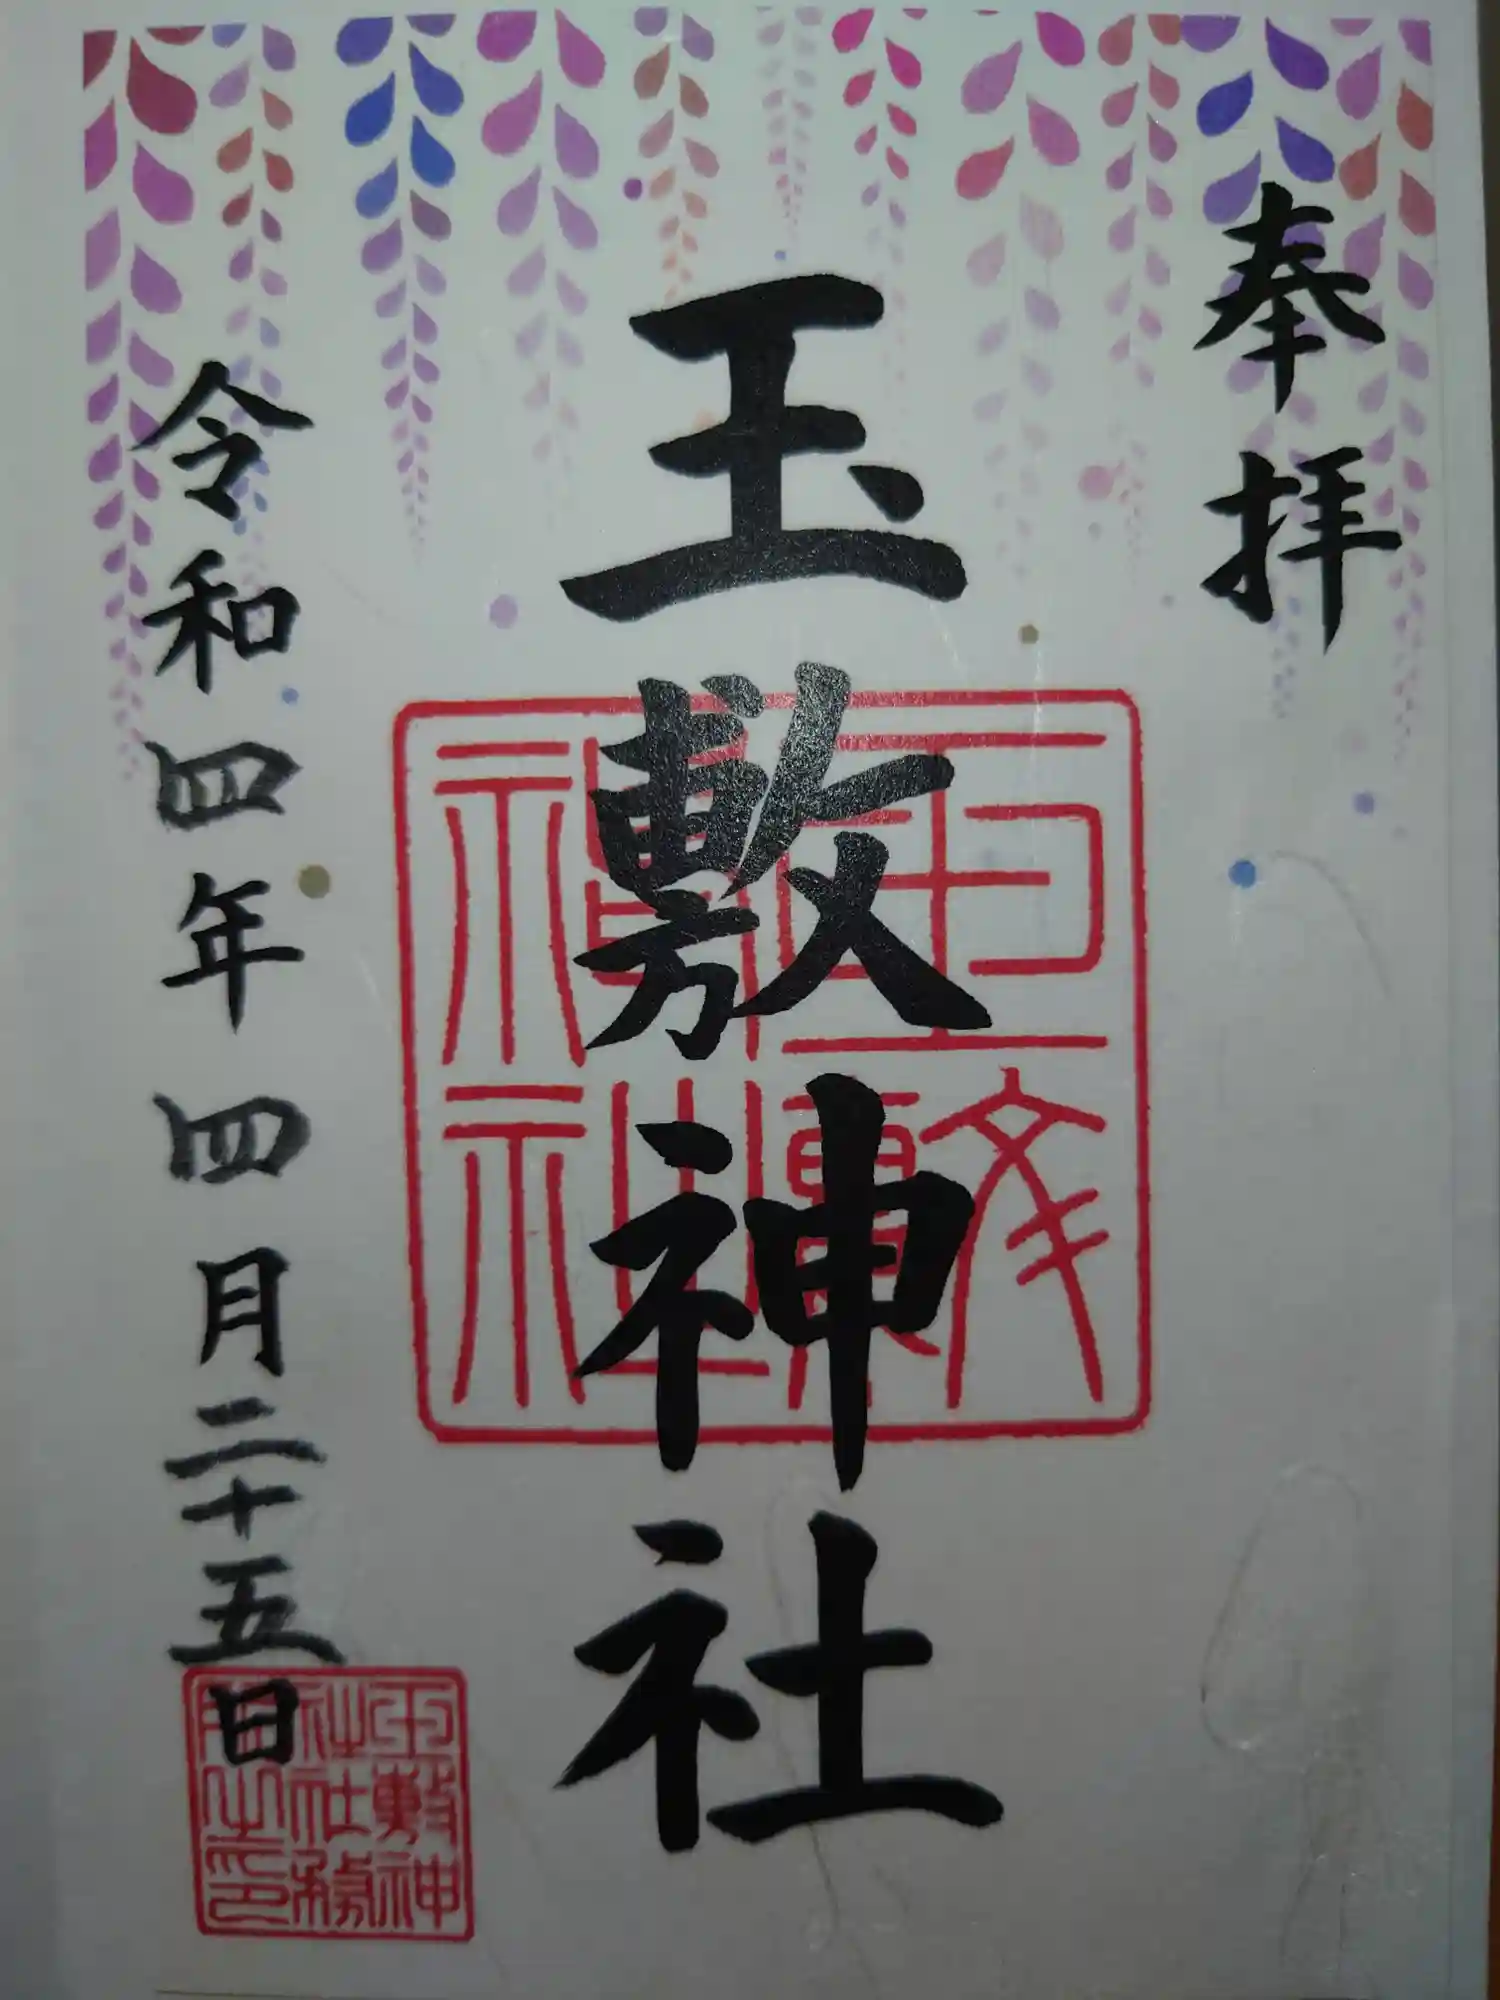 奉拝
玉敷神社
玉敷神社
令和四年四月二十五日
玉敷神
社社務
所之印